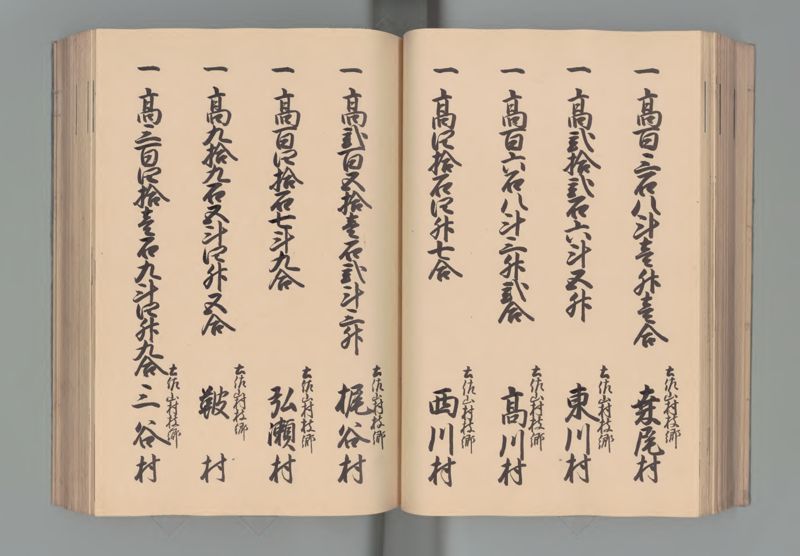 一 高百三石八斗壱升壱合
土佐山村枝郷
桑尾村
一 高弐拾弐石六斗五升
土佐山村枝郷
東川村
一 高百六石八斗三升弐合
土佐山村枝郷
高川村
一 高四拾石四升七合
土佐山村枝郷
西川村
一 高弐百五拾壱石弐斗三升
土佐山村枝郷
梶谷村
一 高百四拾石七斗九合
土佐山村枝郷
弘瀬村
一 高九拾九石五斗四升五合
土佐山村枝郷
鞁村
一 高三百四拾壱石九斗四升九合
土佐山村枝郷
三谷村